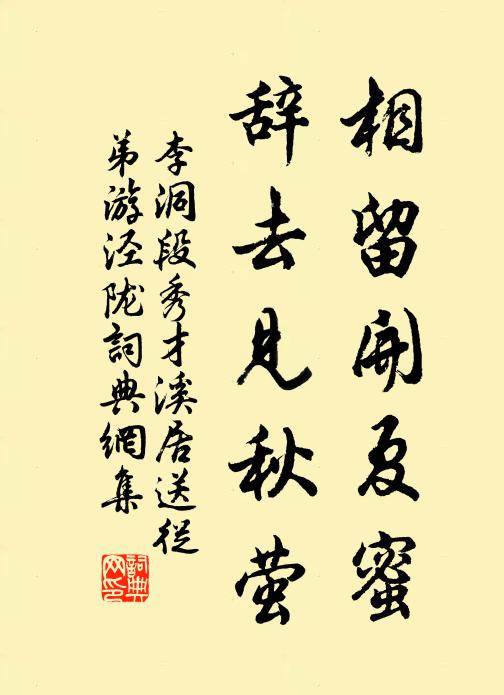 相留开夏蜜
辞去见秋萤
李洞段秀才溪居送従
弟游泾陇詞典網集
詞典
网印